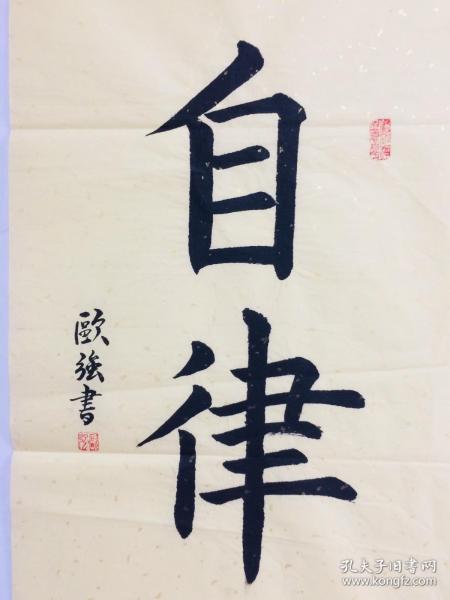 自律
歐強書
孔夫子旧书网
www.kongfz.com